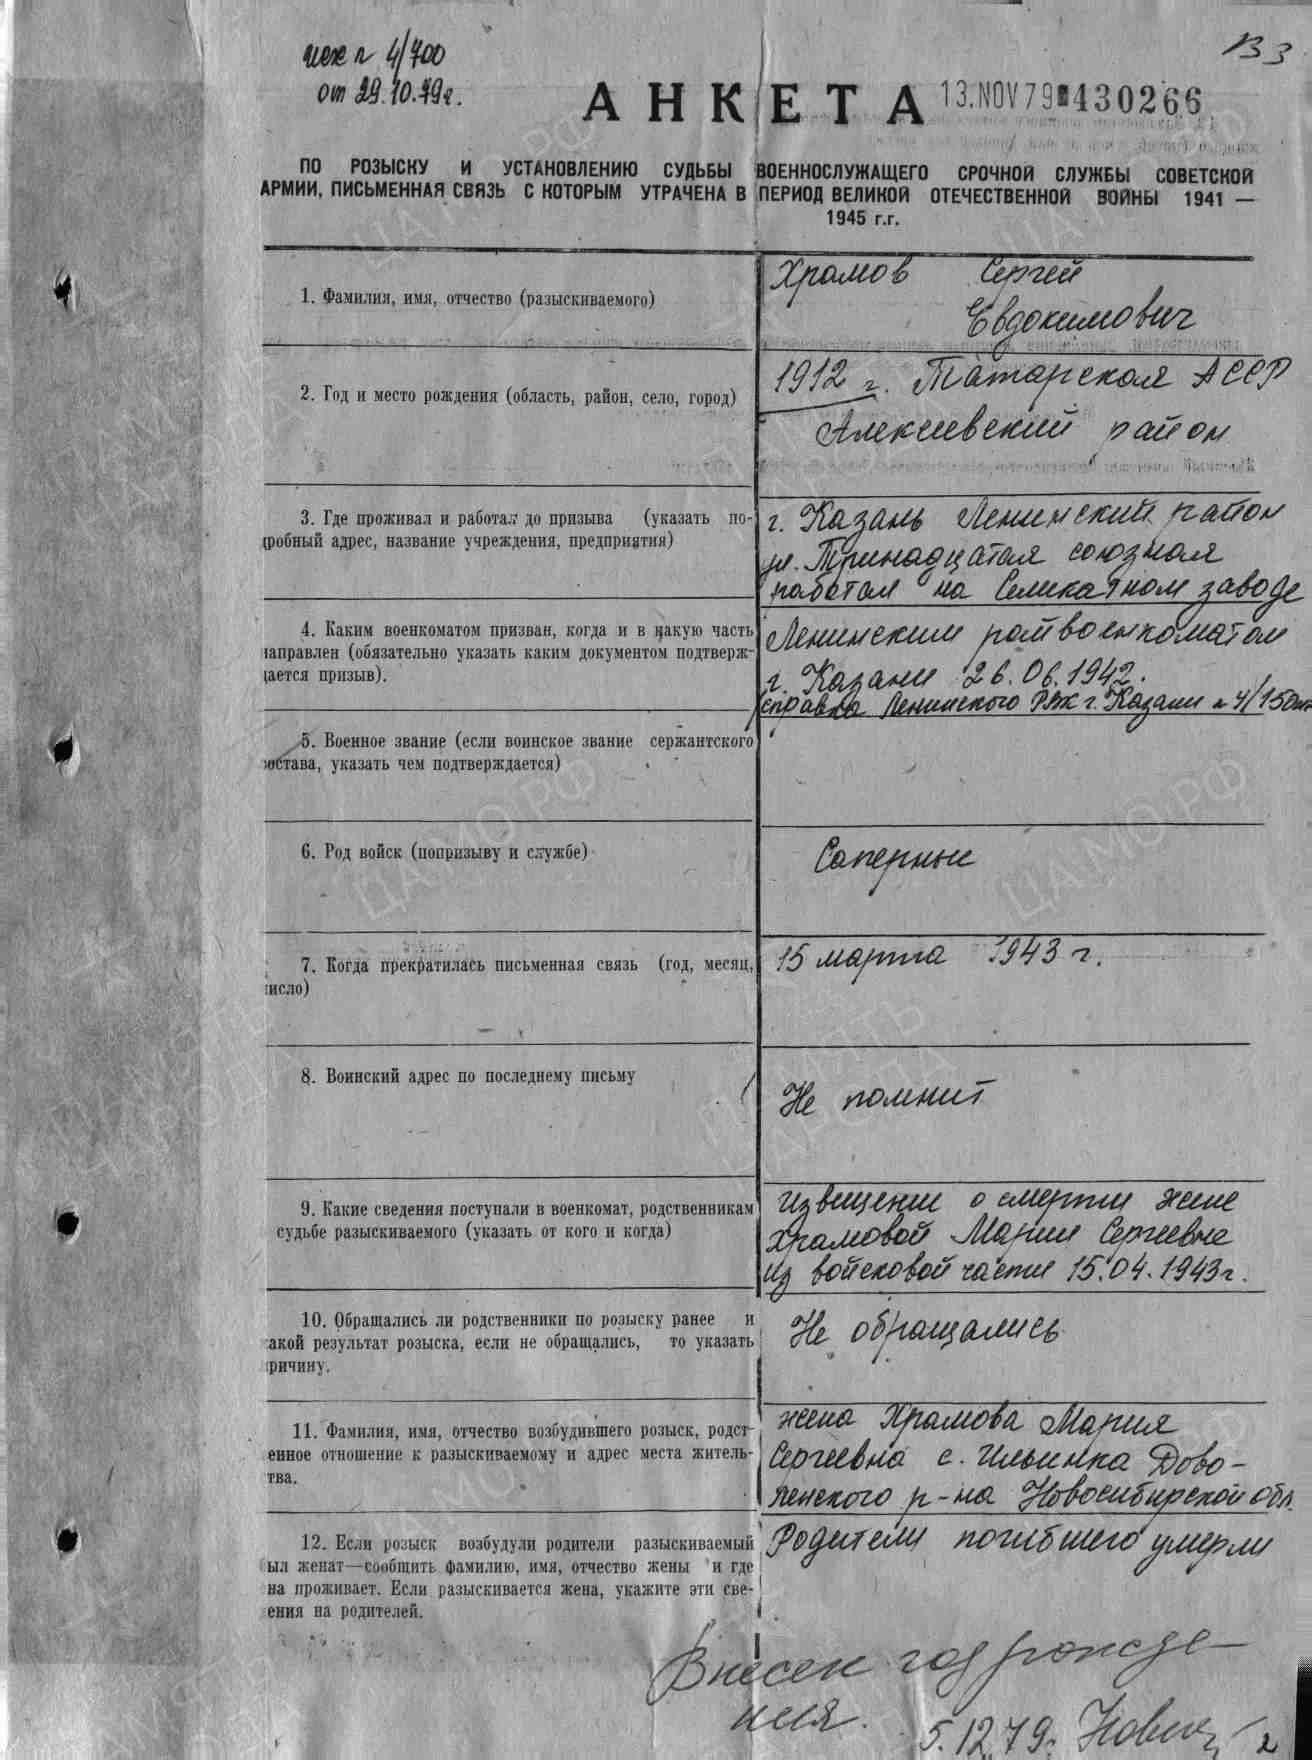 исх № 4/700
от 29.10.79г.
ВЗ
АНКЕТА
13.NOV79 430266
ПО РОЗЫСКУ И УСТАНОВЛЕНИЮ СУДЬБЫ ВОЕННОСЛУЖАЩЕГО СРОЧНОЙ СЛУЖБЫ СОВЕТСКОЙ
АРМИИ, ПИСЬМЕННАЯ СВЯЗЬ С КОТОРЫМ УТРАЧЕНА В ПЕРИОД ВЕЛИКОЙ ОТЕЧЕСТВЕННОЙ ВОЙНЫ 1941 —
1945 г.г.
1. Фамилия, имя, отчество (разыскиваемого)
Храмов Сергей
Евдокимович
2. Год и место рождения (область, район, село, город)
1912 г. Татарская АССР
Алексеевский район
3. Где проживал и работал до призыва (указать по-
дробный адрес, название учреждения, предприятия)
г. Казань Ленинский район
ул. Тринадцатая союзная
работал на Силикатном заводе
4. Каким военкоматом призван, когда и в какую часть
направлен (обязательно указать каким документом подтверж-
дается призыв).
Ленинским райвоенкоматом
г. Казани 26.06.1942.
справка Ленинского РВК г. Казани № 4/150
5. Военное звание (если воинское звание сержантского
состава, указать чем подтверждается)
6. Род войск (попризыву и службе)
Саперные
7. Когда прекратилась письменная связь (год, месяц,
число)
15 марта 1943 г.
8. Воинский адрес по последнему письму
Не помнит
9. Какие сведения поступали в военкомат, родственникам
судьбе разыскиваемого (указать от кого и когда)
Извещение о смерти жене
Храмовой Марии Сергеевне
из войсковой части 15.04.1943г.
10. Обращались ли родственники по розыску ранее и
какой результат розыска, если не обращались, то указать
причину.
Не обращались
11. Фамилия, имя, отчество возбудившего розыск, родст-
енное отношение к разыскиваемому и адрес места житель-
тва.
жена Храмова Мария
Сергеевна с. Ильинка Дово-
ленского р-на Новосибирской обл.
12. Если розыск возбудули родители разыскиваемый
был женат—сообщить фамилию, имя, отчество жены и где
она проживает. Если разыскивается жена, укажите эти све-
дения на родителей.
Родители погибшего умерли
Внесен год рожде-
ния.
5.12.79г.
2